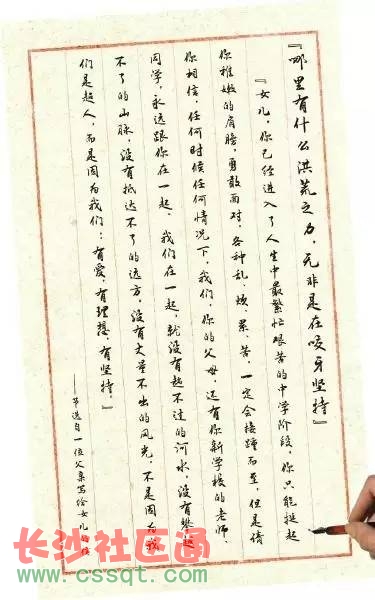 『哪里有什么洪荒之力,无非是在咬牙坚持』
『女儿,你已经进入了人生中最繁忙艰苦的中学阶段,你只能挺起
你稚嫩的肩膀,勇敢面对,各种乱、烦、累、苦,一定会接踵而至,但是请
你相信,任何时候任何情况下,我们,你的父母,还有你新学校的老师、
同学,永远跟你在一起,我们在一起,就没有趟不过的河水,没有攀越
不了的山脉,没有抵达不了的远方,没有丈量不出的风光,不是因为我
们是超人,而是因为我们:有爱,有理想,有坚持。』
——节选自一位父亲写给女儿的信
长沙社区通
www.cssqt.com